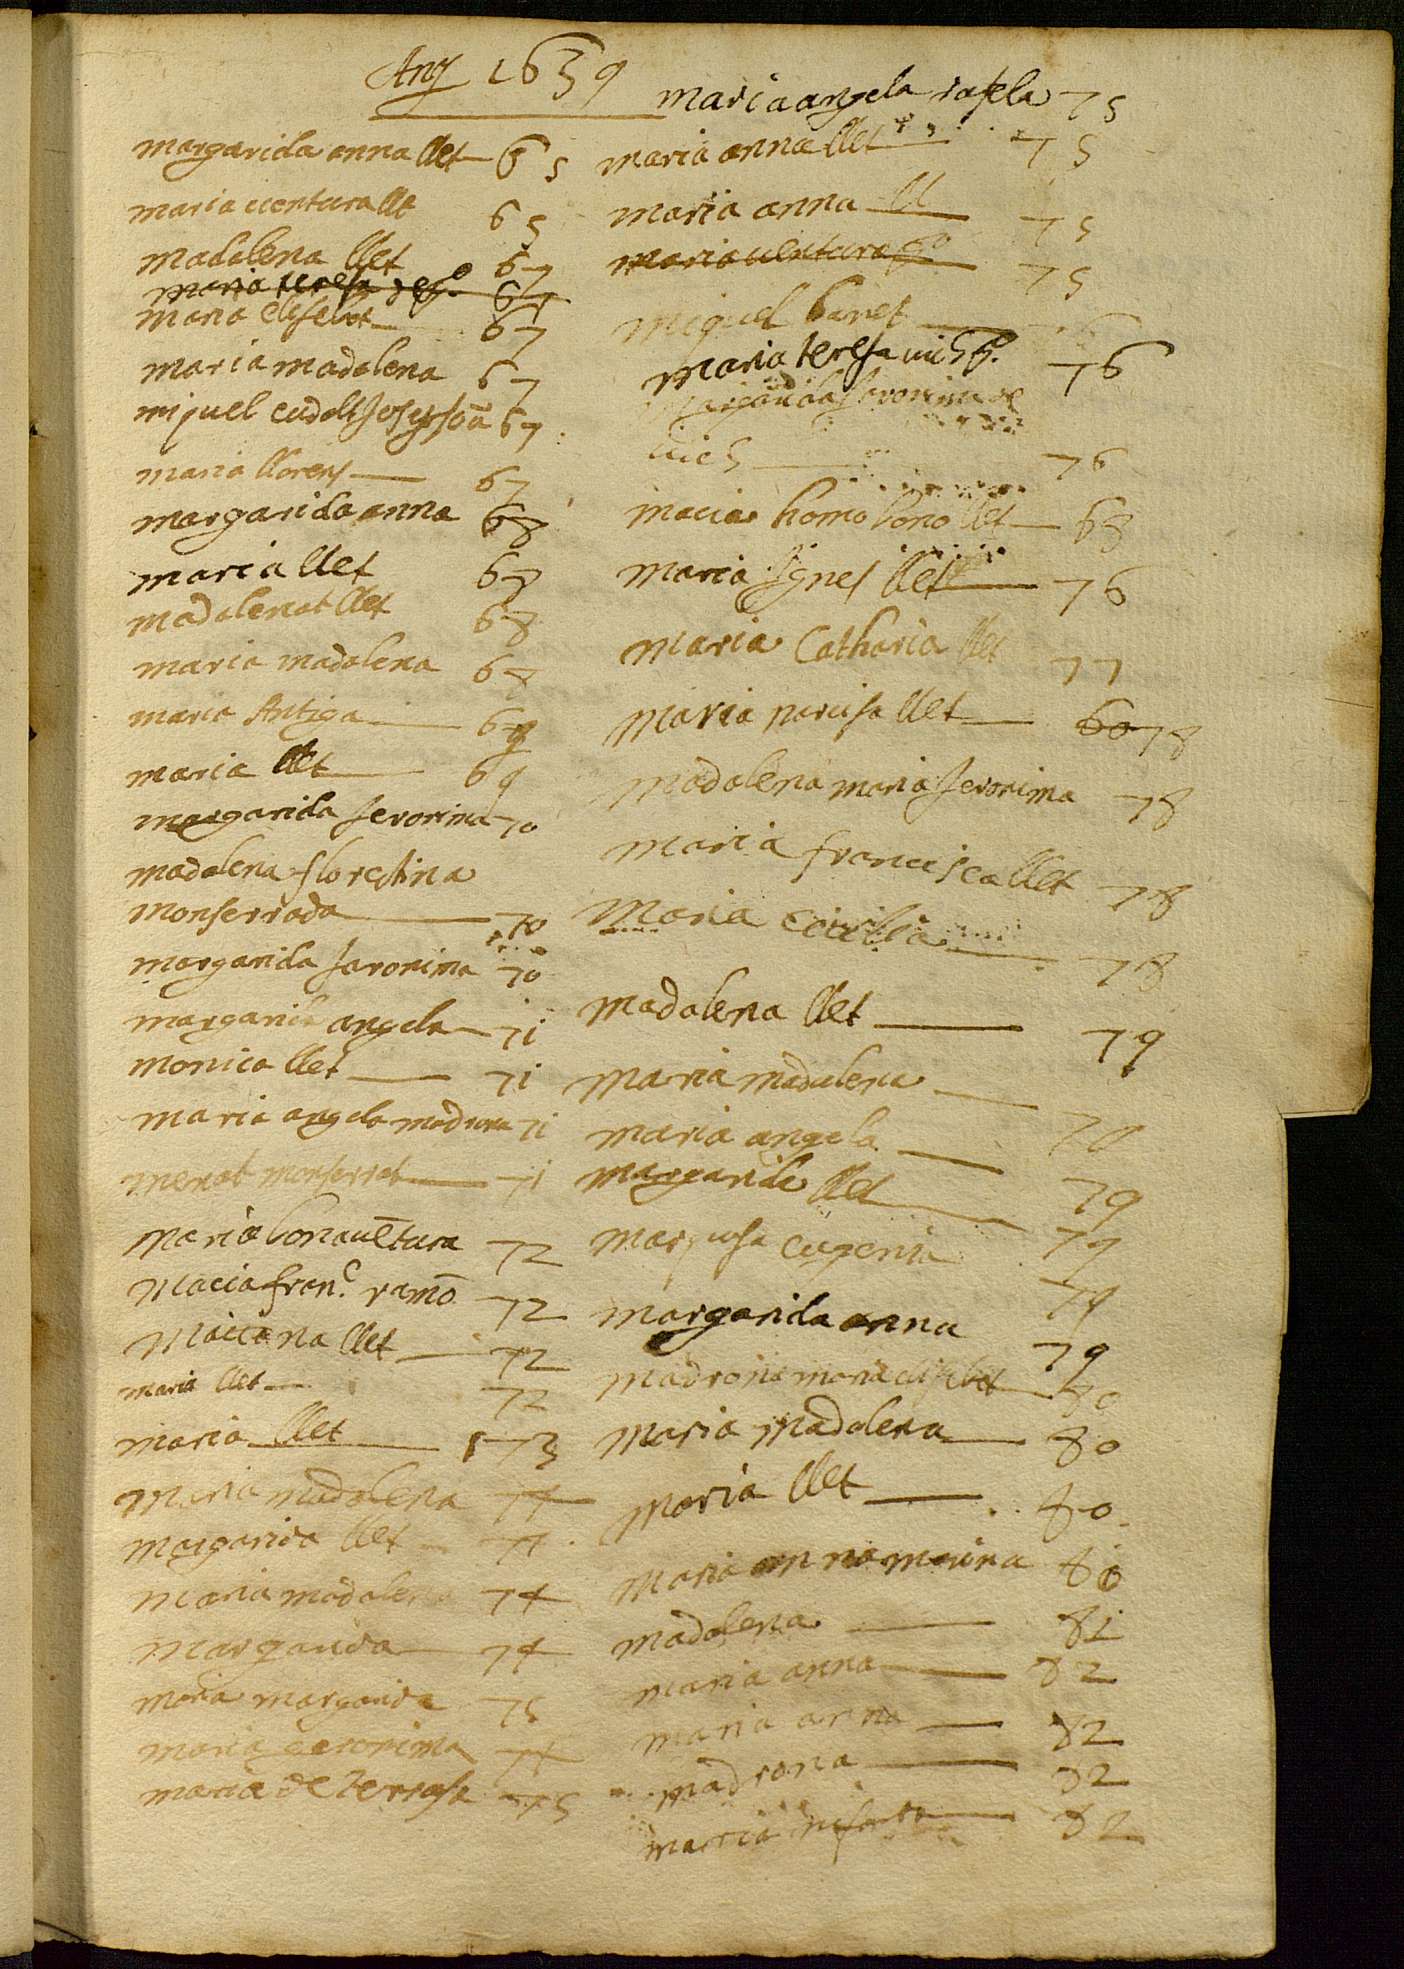 Any 1639
margarida anna llet 65
maria ventura llet 65
madalena llet 67
maria teresa 67
maria elisebet 67
maria madalena 67
miquel Joseph Joã 67
maria llorens 67
margarida anna 68
maria llet 68
madalena llet 68
maria madalena 68
maria Antiga 69
maria llet 69
margarida Jeronima 70
madalena florestina
monserrada 70
margarida Jaronima 70
margarida angela 71
monica llet 71
maria angela madrona 71
menat monserrat 71
Maria bonauētura 72
Macia franc. ramō 72
llet 72
maria llet 72
maria llet 73
Maria madalena 74
Margarida llet 74
Maria madalena 74
Margarida 74
Maria margarida 75
maria Geronima 74
maria de Terrasa 75
maria angela rafela 75
maria anna llet 75
maria anna ll 75
maria uentura 75
miquel
maria teresa uich 76
margarida Jaronima de
uich 76
macia homo bono llet 68
Maria Ignes llet 76
Maria Catharia llet 77
Maria narcisa llet 60 78
Madalena maria Jeronima 78
maria francisca llet 78
Maria Cicilia 78
Madalena llet 79
Maria Madalena
maria angela 79
margarida llet 79
eugenia 79
margarida anna 79
Madrona maria elisebet 80
Maria Madalena 80
Maria llet 80
Maria anna marina 80
madalena 81
maria anna 82
maria anna 82
madrona 82
82